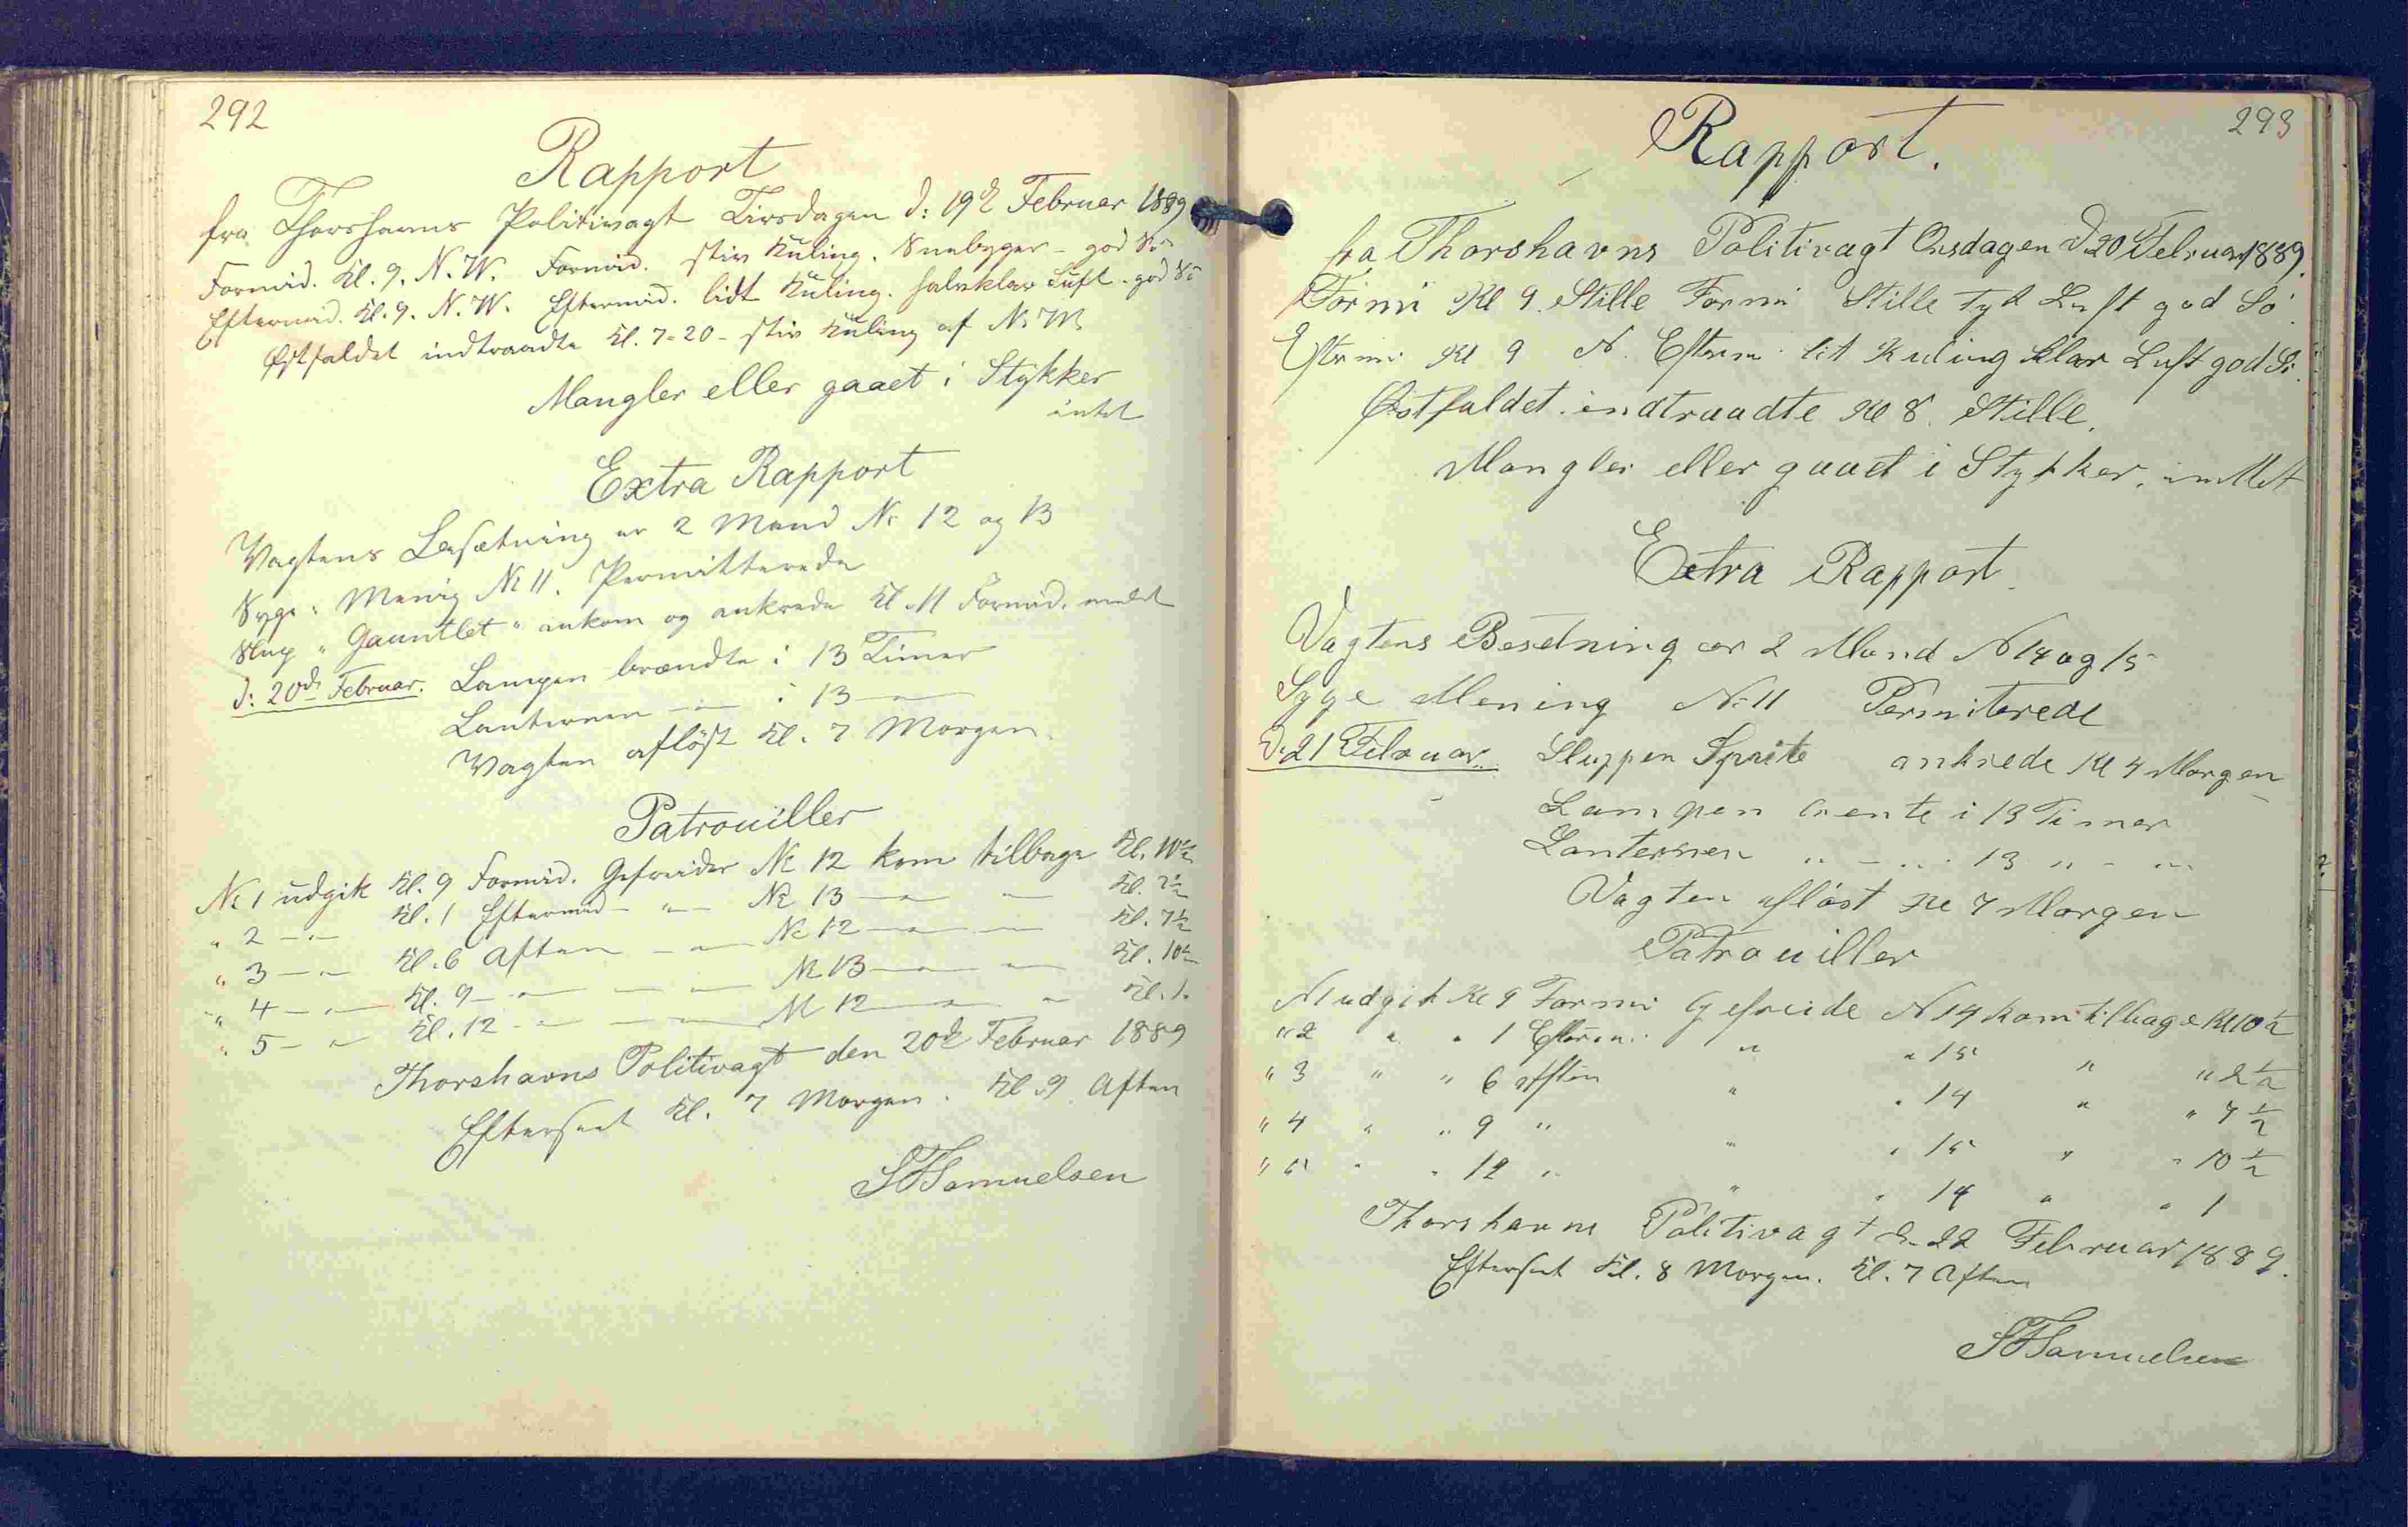 292
Rapport
fra Thorshavns Politivagt Tirsdagen d: 19d Februar 1889
Formid. Kl. 9. N. W. Formid. stiv Kuling. Snebyger - god Sö
Eftermid. Kl. 9. N. W. Eftermid. lidt Kuling. halvklar Luft - god Sö
Østfaldet indtraadte Kl. 7-20 - stiv Kuling af N. W
Mangler eller gaaet i Stykker
intet
Extra Rapport
Vagtens Besætning er 2 Mand No 12 og 13
Syge: Menig No 11. Permitterede
Slup "Gauntlet" ankom og ankrede Kl. 11 Formid. meldt
d: 20de Februar. Lampen brændte i 13 Timer
Lanternen -"- i 13 -"-
Vagten aflöst Kl. 7 Morgen.
Patrouiller
No 1 udgik Kl. 9 Formid. Gefreider No 12 kom tilbage Kl. 10½
" 2 -"- Kl. 1 Eftermid -"- No 13 -"- -"- Kl. 2½
" 3 -"- Kl. 6 Aften -"- No 12 -"- -"- Kl. 7½
" 4 -"- Kl. 9 -"- -"- No 13 -"- -"- Kl. 10½
" 5 -"- Kl. 12 -"- -"- No 12 -"- -"- Kl. 1.
Thorshavns Politivagt den 20d Februar 1889
Efterseet Kl. 7 Morgen. Kl 9 Aften
Samuelsen
293
Rapport.
fra Thorshavns Politivagt Onsdagen d 20 Februar 1889.
Formi Kl 9. Stille Formi Stille Tyk Luft god Sö.
Efterm. Kl 9 N. Efterm. lit Kuling klar Luft god Sö.
Østfaldet indtraadte Kl 8. Stille.
Mangler eller gaaet i Stykker. inttet
Extra Rapport.
Vagtens Besetning er 2 Mand N 14 og 15
Syge Mening No 11 Permiterede
D. 21 Februar. Sluppen Sprite ankrede Kl 4 Morgen
Lampen brente i 13 Timer
Lanternen " - " . 13 " - "
Vagten aflöst Kl 7 Morgen
Patrouiller
N 1 udgik Kl 9 Formi Gefreide N 14 kom tilbage Kl 10½
" 2 " " 1 Efterm. " " 15 " " 2½
" 3 " " 6 Aften " " 14 " " 7½
" 4 " " 9 " " " 15 " " 10½
" 5 " " 12 " " " 14 " " 1
Thorshavns Politivagt d. 22 Februar 1889.
Efterseet Kl. 8 Morgen. Kl. 7 Aften
Samuelsen